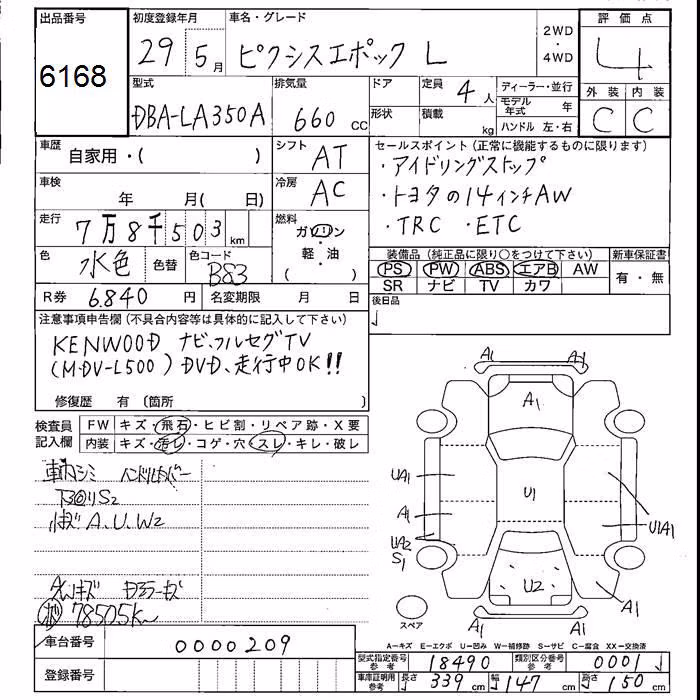 出品番号 初度登録年月 車名・グレード 2WD・4WD 評価点
6168 29 5月 ピクシスエポック L 4
型式 排気量 ドア 定員 4人 ディーラー・並行 外装 内装
DBA-LA350A 660 CC 形状 積載 kg モデル年式 年 C C
ハンドル 左・右
車歴 自家用・( ) シフト AT セールスポイント(正常に機能するものに限ります)
・アイドリングストップ
車検 年 月( 日) 冷房 AC ・トヨタの14インチAW
走行 7万8千503km 燃料 ガソリン・軽・油 ( ) ・TRC ・ETC
色 水色 色替 色コード B83 装備品(純正品に限り○をつけて下さい) 新車保証書
PS PW ABS エアB AW 有・無
SR ナビ TV カワ
R券 6.840 円 名変期限 月 日 後日品
注意事項申告欄(不具合内容等は具体的に記入して下さい)
KENWOOD ナビ、フルセグTV
(MDV-L500) DVD、走行中OK!!
修復歴 有(箇所 )
検査員記入欄 FW キズ・飛石・ヒビ割・リペア跡・X要
内装 キズ・汚レ・コゲ・穴・スレ・キレ・破レ
車内シミ
S2
A.U.W2
78505k
A1 A1
A1
UA1
U1
A1
U1A1
UA2
S1
U2
A1
スペア
A1 A1
車台番号 0000209
A=キズ E=エクボ U=凹み W=補修跡 S=サビ C=腐食 XX=交換済
登録番号 型式指定番号参考 18490 類別区分番号参考 0001
車庫証明用参考 長さ 339cm 幅 147cm 高さ 150cm